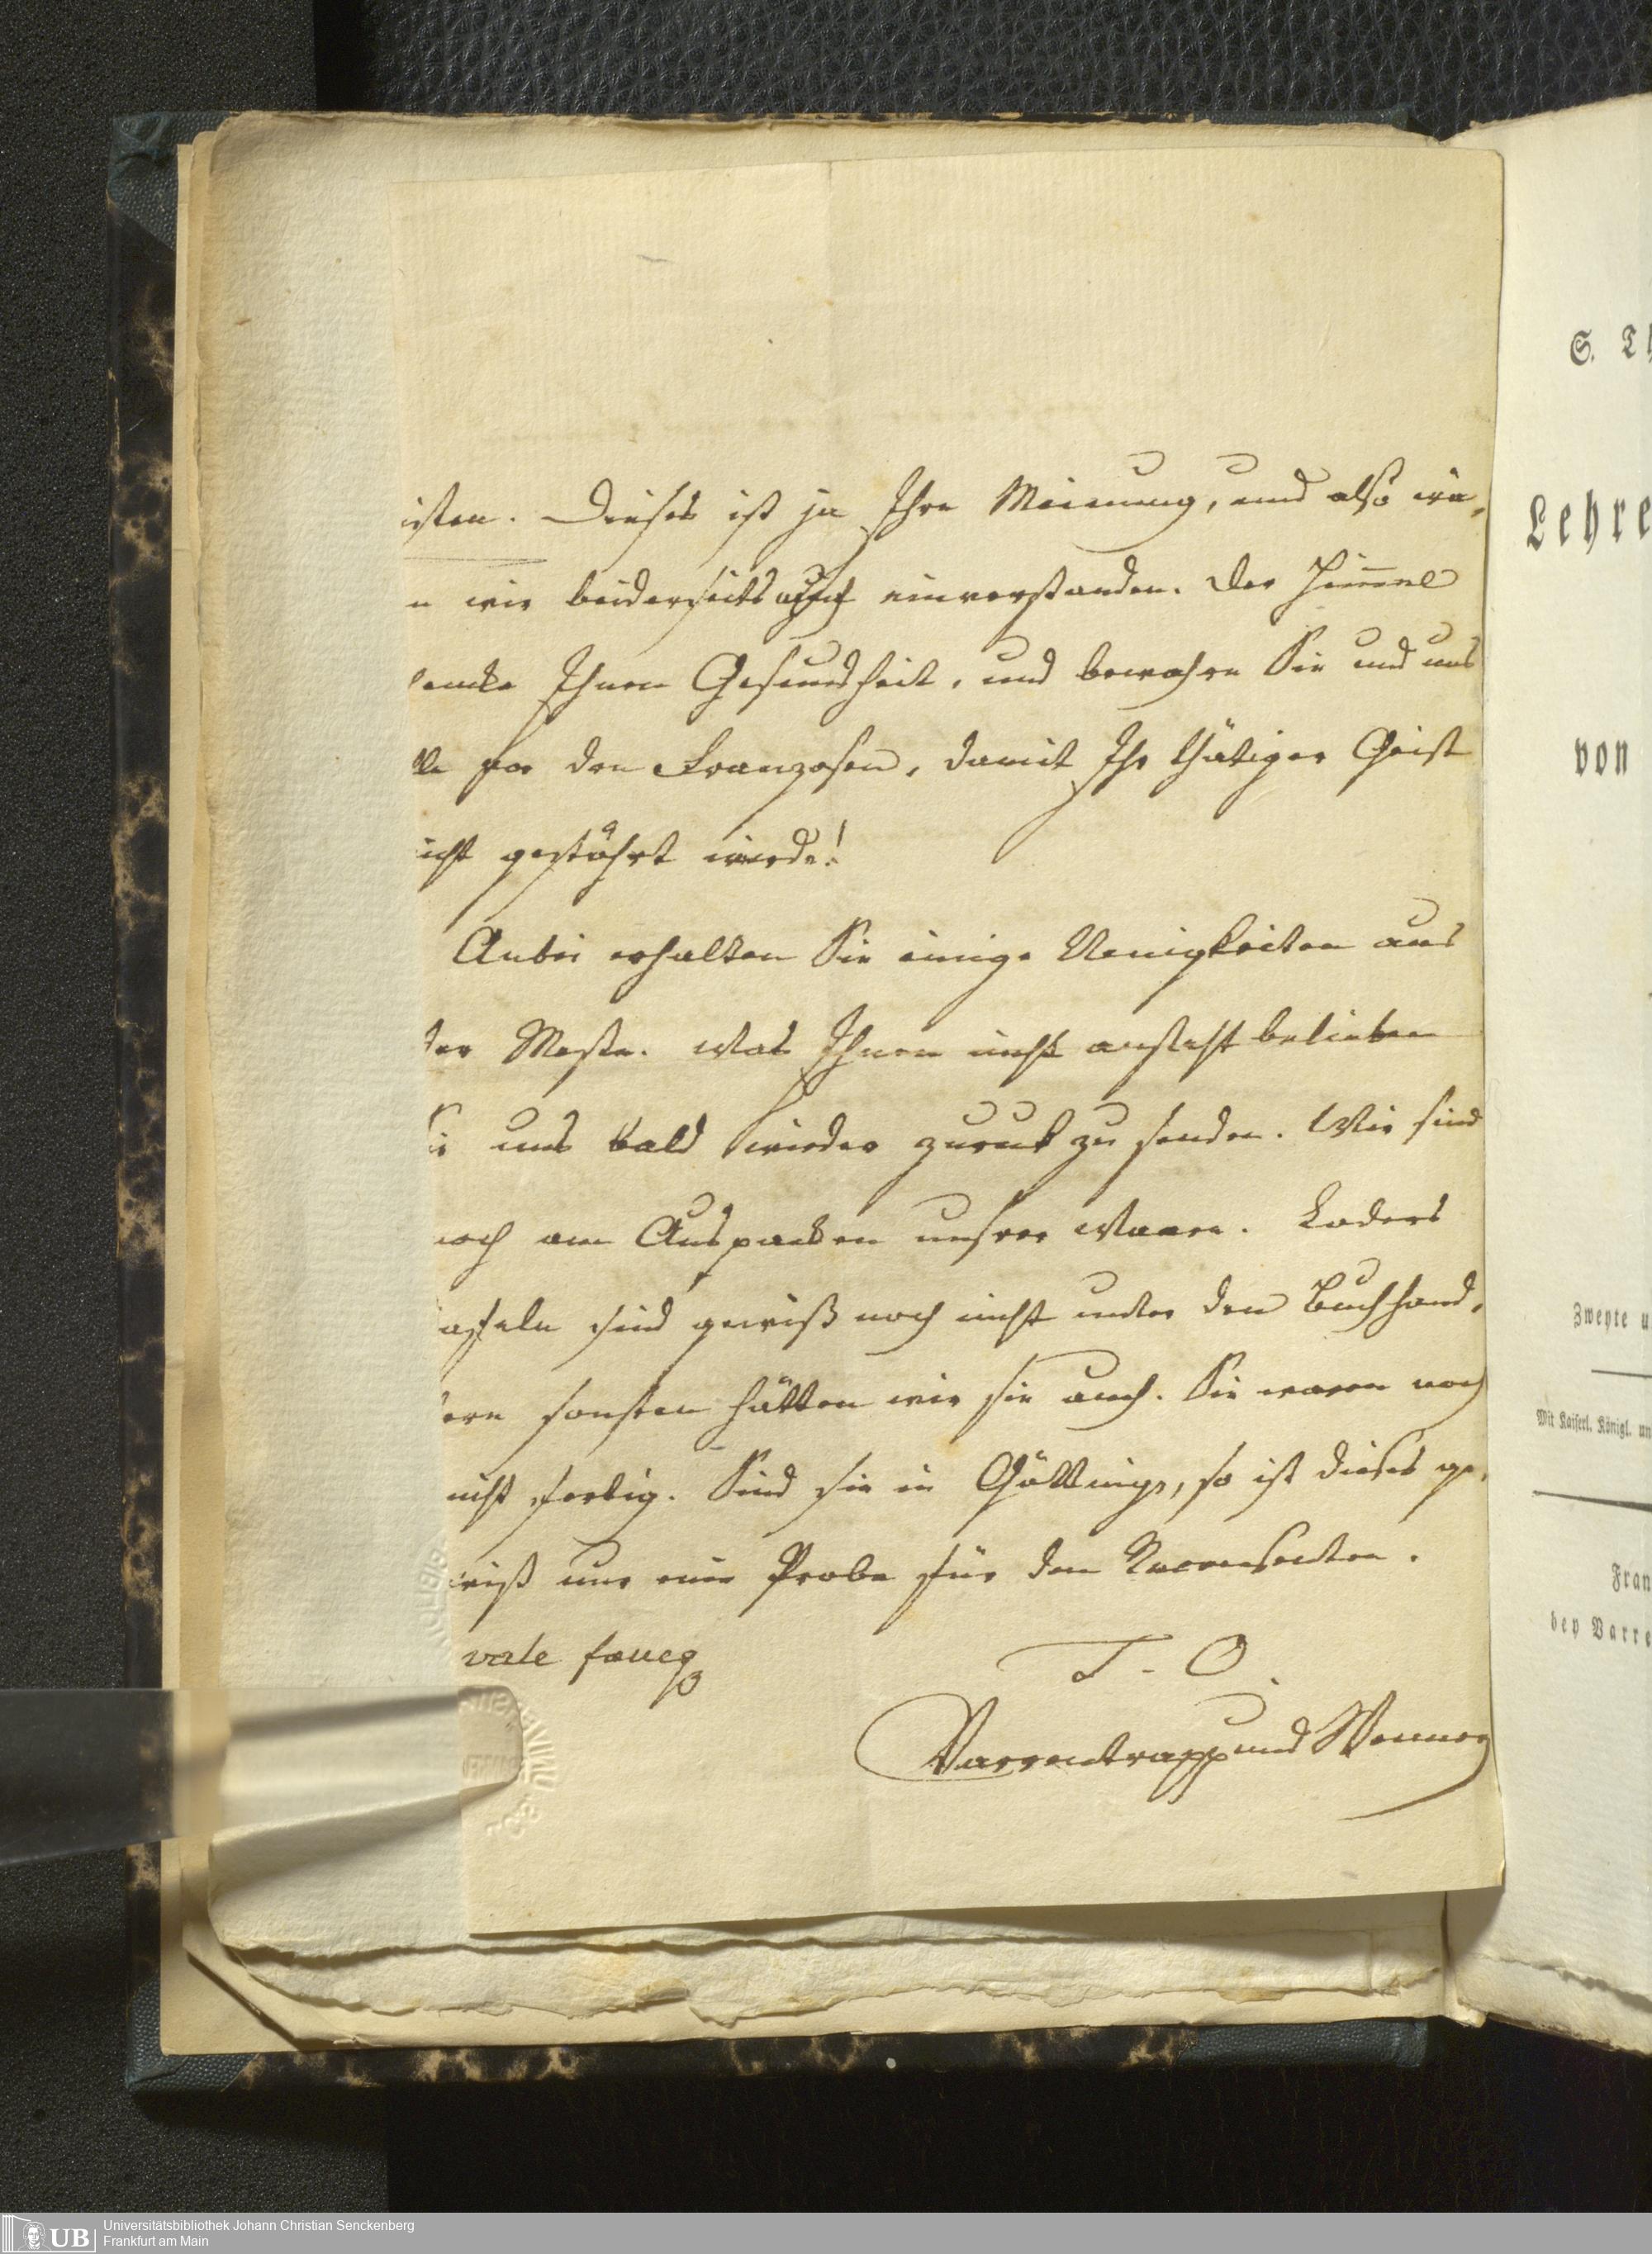 isten. Dieses ist ja Ihre Meinung, und also wä-
n wir beiderseits auch einverstanden. Der Himmel
encke Ihnen Gesundheit, und bewahre Sie und uns
lle vor den Franzosen, damit Ihr thätiger Geist
icht gestöhrt werde!
Anbei erhalten Sie einige Neuigkeiten aus
der Messe. Was Ihnen nicht ansteht belieben
Sie uns bald wieder zuruk zu senden. Wir sind
noch am Auspacken unsrer Waare. Loders
afeln sind gewiß noch nicht unter den Buchhänd-
lern sonsten hätten wir sie auch. Sie waren noch
nicht fertig. Sind sie in Götting, so ist dieses ge-
wiß nur eine Probe für den Recensenten.
vale faueq
T. O.
Varrentrapp und Wenner
S. Th
Lehre
von
Zweyte u
Mit Kaiserl. Königl. un
Fran
bey Varre
UB
Universitätsbibliothek Johann Christian Senckenberg
Frankfurt am Main